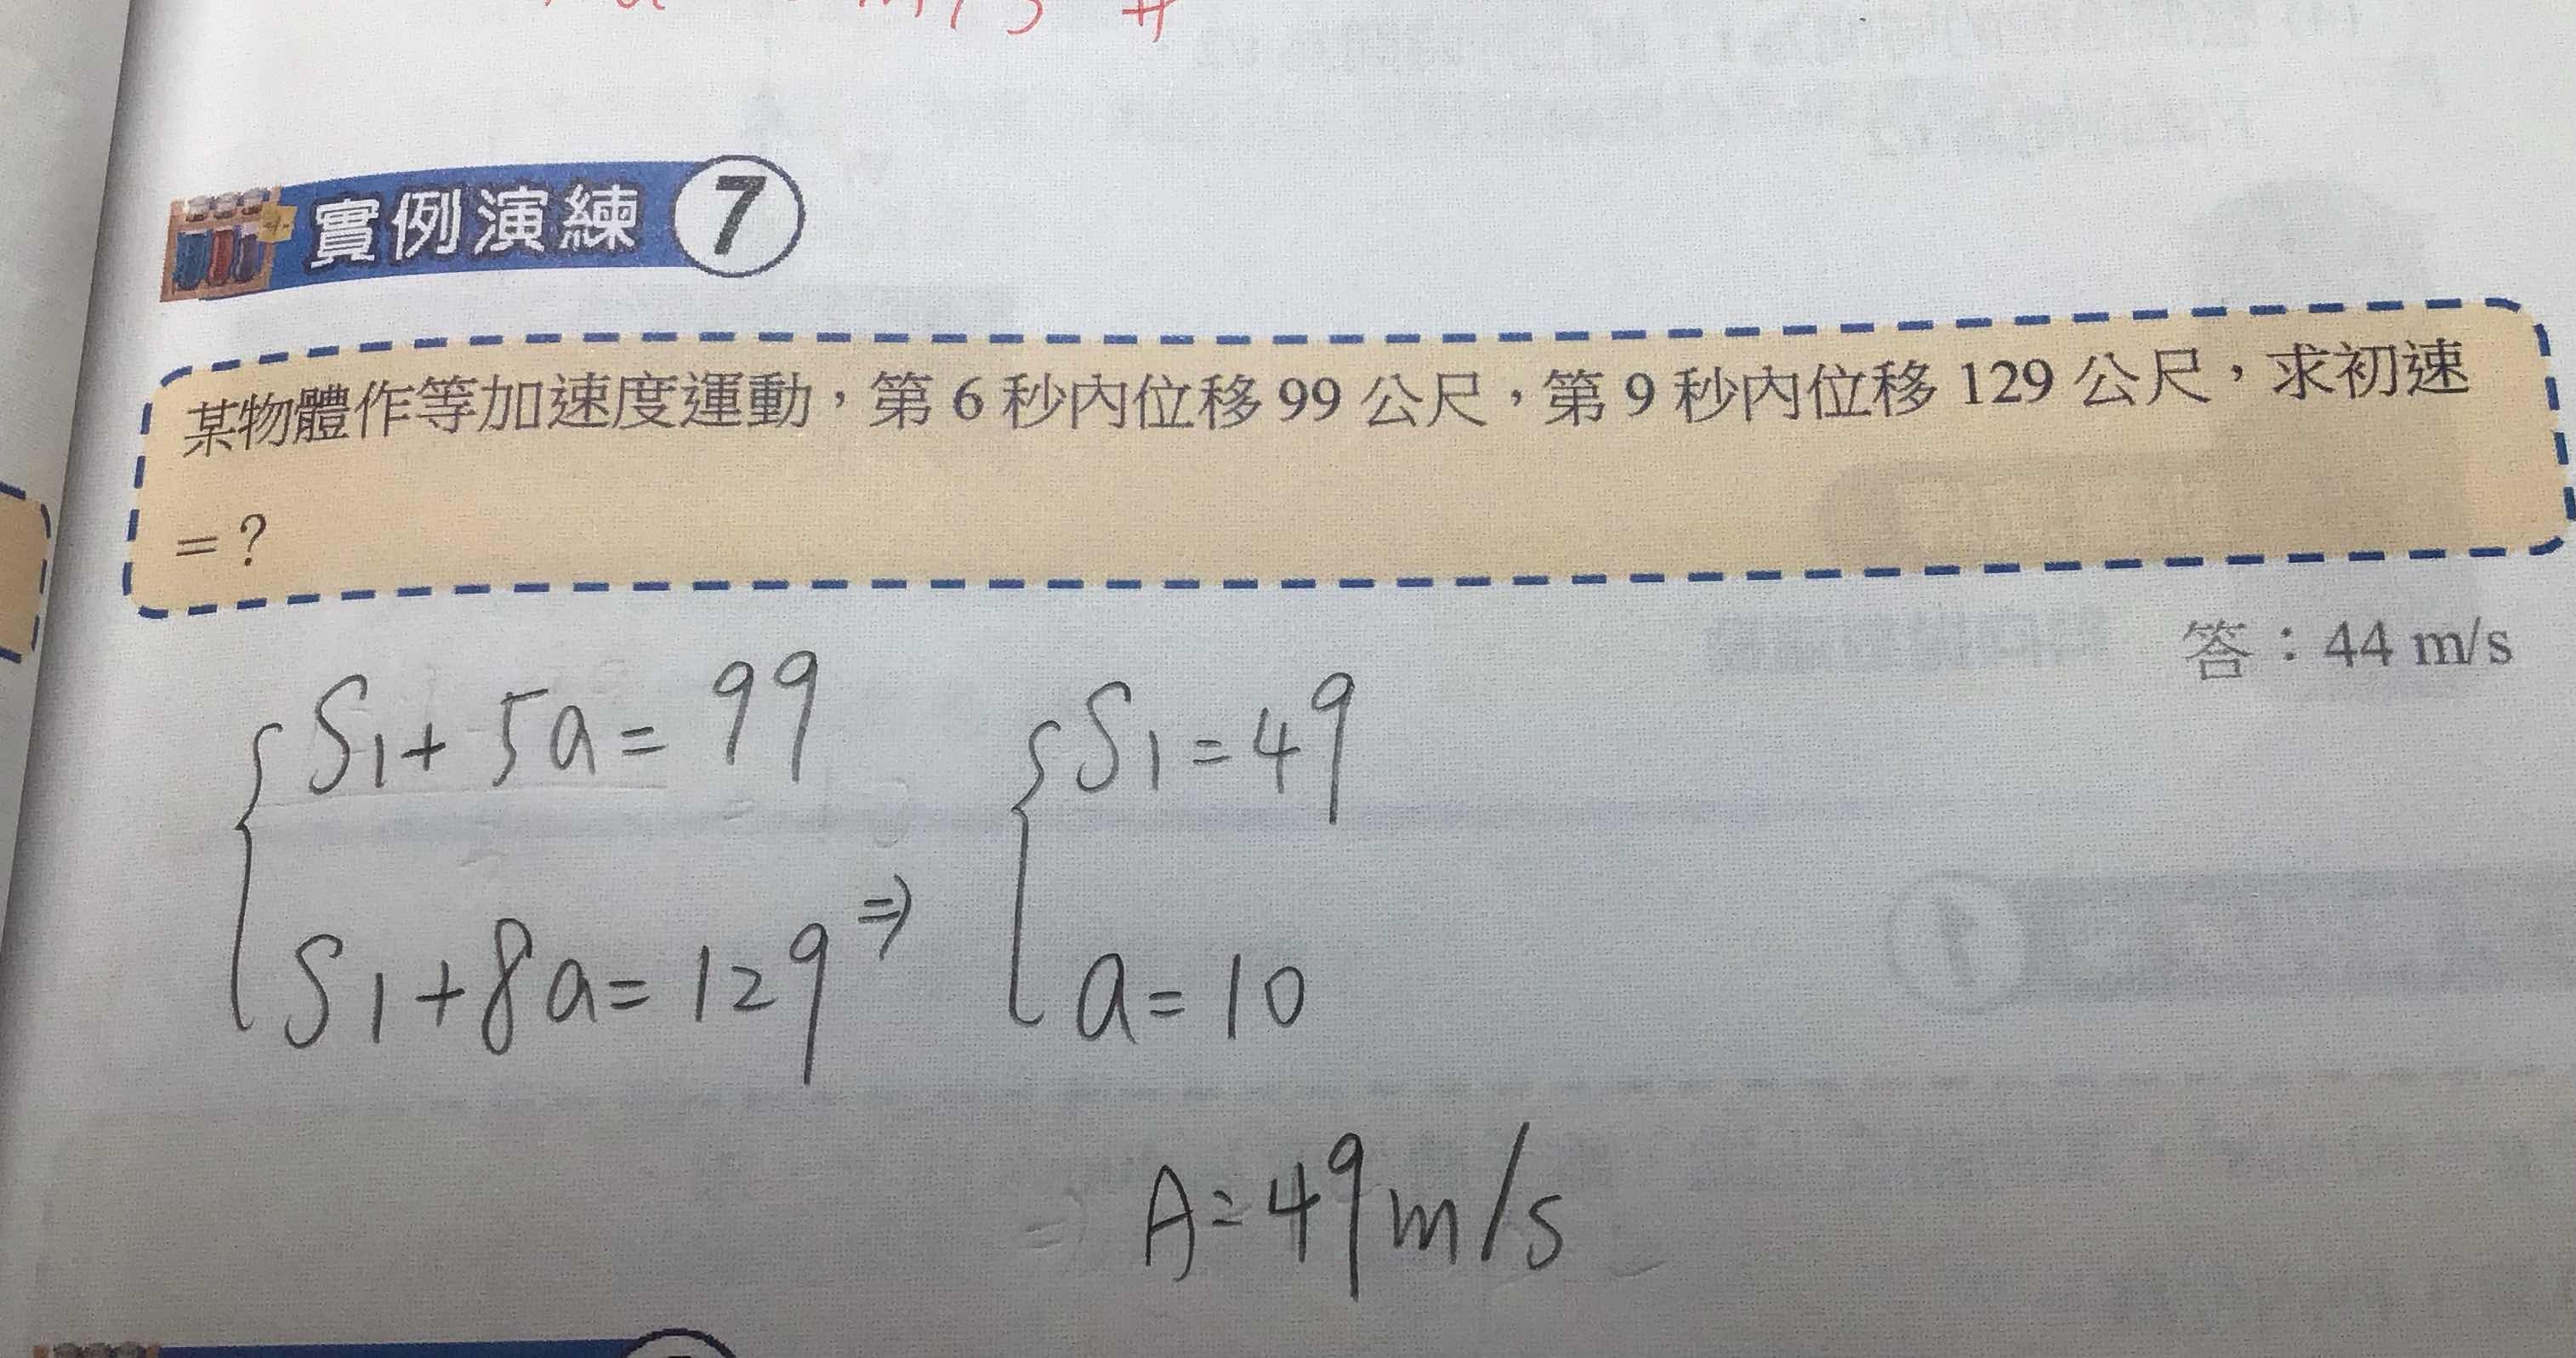 實例演練 7
某物體作等加速度運動，第 6 秒內位移 99 公尺，第 9 秒內位移 129 公尺，求初速
= ?
答：44 m/s
S1+5a=99
S1=49
S1+8a=129 ⇒
a=10
⇒ A=49m/s